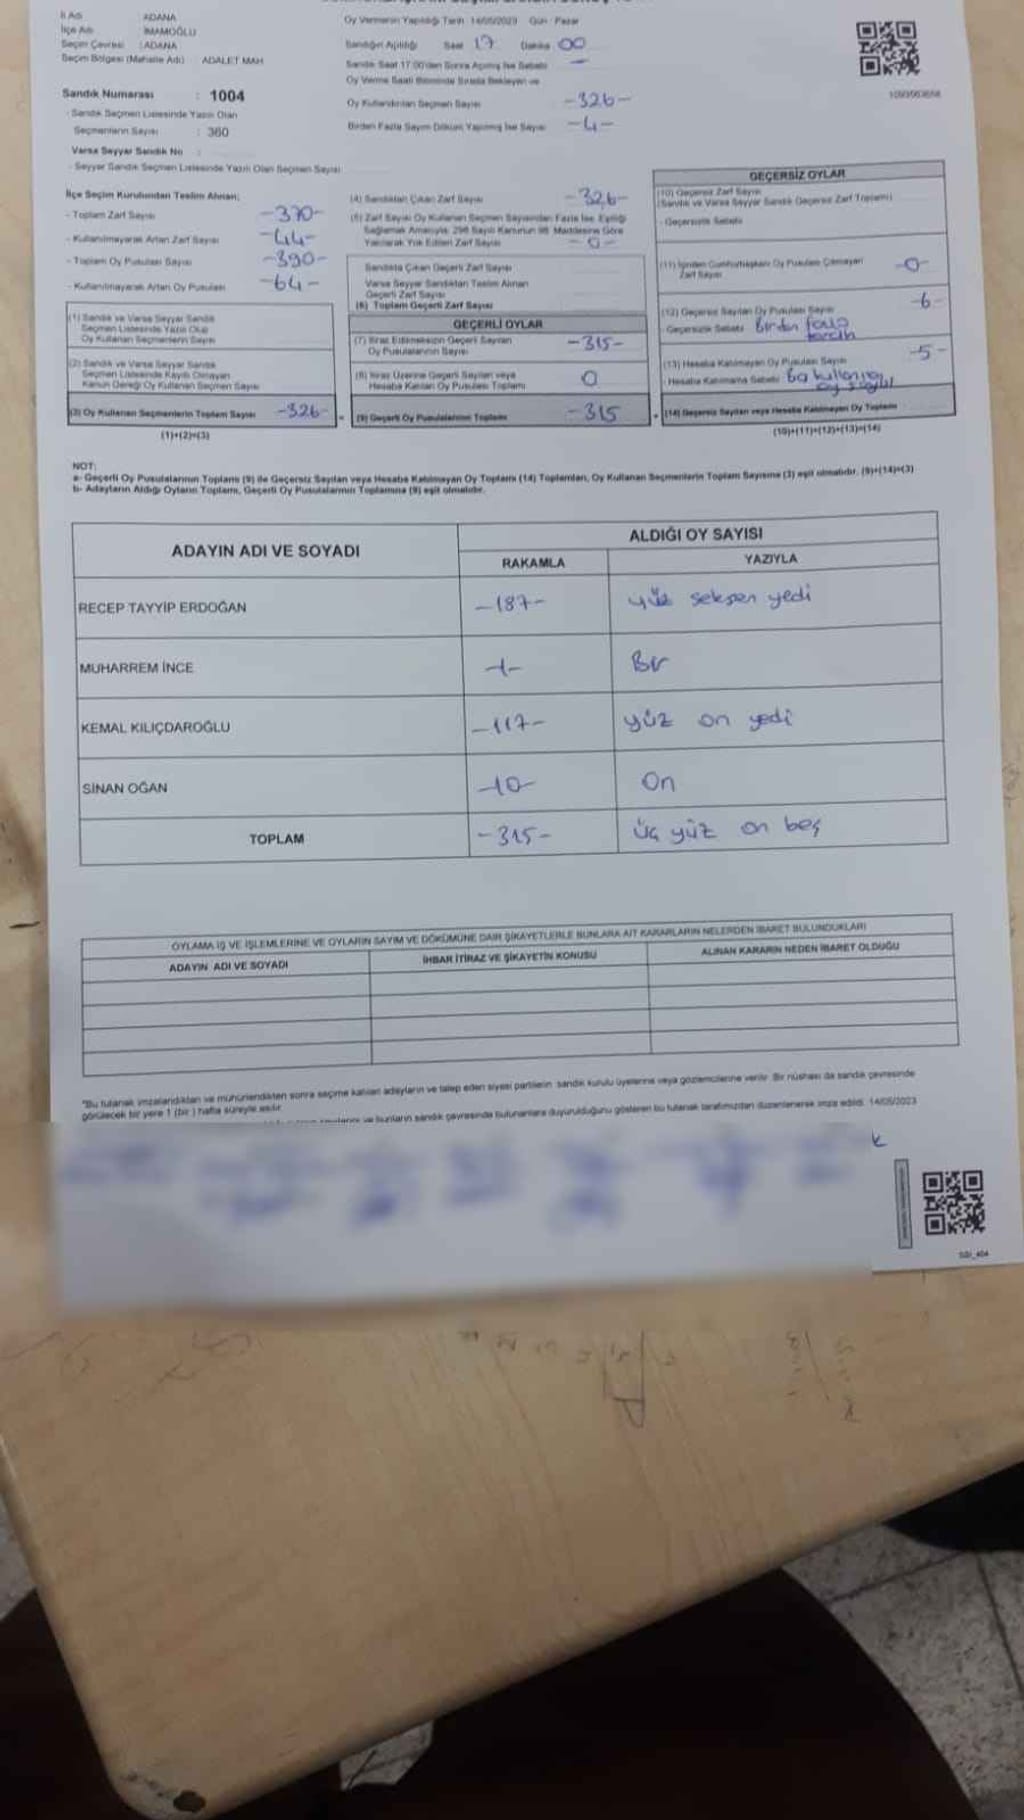 İl Adı ADANA
İlçe Adı İMAMOĞLU
Seçim Çevresi : ADANA
Seçim Bölgesi (Mahalle Adı) ADALET MAH
Sandık Numarası : 1004
- Sandık Seçmen Listesinde Yazılı Olan
Seçmenlerin Sayısı : 360
Varsa Seyyar Sandık No :
- Seyyar Sandık Seçmen Listesinde Yazılı Olan Seçmen Sayısı
Oy Vermenin Yapıldığı Tarih 14/05/2023 Gün : Pazar
Sandığın Açıldığı Saat 17 Dakika 00
Sandık Saat 17:00'den Sonra Açılmış İse Sebebi -
Oy Verme Saati Bitiminde Sırada Bekleyen ve
Oy Kullandırılan Seçmen Sayısı -326-
Birden Fazla Sayım Döküm Yapılmış İse Sayısı -4-
1093563658
İlçe Seçim Kurulundan Teslim Alınan;
- Toplam Zarf Sayısı -370-
- Kullanılmayarak Artan Zarf Sayısı -44-
- Toplam Oy Pusulası Sayısı -390-
- Kullanılmayarak Artan Oy Pusulası -64-
(1) Sandık ve Varsa Seyyar Sandık
Seçmen Listesinde Yazılı Olup
Oy Kullanan Seçmenlerin Sayısı
(2) Sandık ve Varsa Seyyar Sandık
Seçmen Listesinde Kayıtlı Olmayan
Kanun Gereği Oy Kullanan Seçmen Sayısı
(3) Oy Kullanan Seçmenlerin Toplam Sayısı -326-
(1)+(2)=(3)
(4) Sandıktan Çıkan Zarf Sayısı -326-
(5) Zarf Sayısı Oy Kullanan Seçmen Sayısından Fazla İse, Eşitliği
Sağlamak Amacıyla, 298 Sayılı Kanunun 98. Maddesine Göre
Yakılarak Yok Edilen Zarf Sayısı -0-
Sandıkta Çıkan Geçerli Zarf Sayısı
Varsa Seyyar Sandıktan Teslim Alınan
Geçerli Zarf Sayısı
(6) Toplam Geçerli Zarf Sayısı
GEÇERLİ OYLAR
(7) İtiraz Edilmeksizin Geçerli Sayılan
Oy Pusulalarının Sayısı -315-
(8) İtiraz Üzerine Geçerli Sayılan veya
Hesaba Katılan Oy Pusulası Toplamı 0
(9) Geçerli Oy Pusulalarının Toplamı -315
GEÇERSİZ OYLAR
(10) Geçersiz Zarf Sayısı
(Sandık ve Varsa Seyyar Sandık Geçersiz Zarf Toplamı)
- Geçersizlik Sebebi
(11) İçinden Cumhurbaşkanı Oy Pusulası Çıkmayan
Zarf Sayısı -0-
(12) Geçersiz Sayılan Oy Pusulası Sayısı -6-
- Geçersizlik Sebebi Birden fazla
tercih
(13) Hesaba Katılmayan Oy Pusulası Sayısı -5-
- Hesaba Katılmama Sebebi
(14) Geçersiz Sayılan veya Hesaba Katılmayan Oy Toplamı
(10)+(11)+(12)+(13)=(14)
NOT:
a- Geçerli Oy Pusulalarının Toplamı (9) ile Geçersiz Sayılan veya Hesaba Katılmayan Oy Toplamı (14) Toplamları, Oy Kullanan Seçmenlerin Toplam Sayısına (3) eşit olmalıdır. (9)+(14)=(3)
b- Adayların Aldığı Oyların Toplamı, Geçerli Oy Pusulalarının Toplamına (9) eşit olmalıdır.
ADAYIN ADI VE SOYADI ALDIĞI OY SAYISI
RAKAMLA YAZIYLA
RECEP TAYYİP ERDOĞAN -187- yüz seksen yedi
MUHARREM İNCE -1- Bir
KEMAL KILIÇDAROĞLU -117- yüz on yedi
SİNAN OĞAN -10- On
TOPLAM -315- üç yüz on beş
OYLAMA İŞ VE İŞLEMLERİNE VE OYLARIN SAYIM VE DÖKÜMÜNE DAİR ŞİKAYETLERLE BUNLARA AİT KARARLARIN NELERDEN İBARET BULUNDUKLARI
ADAYIN ADI VE SOYADI İHBAR İTİRAZ VE ŞİKAYETİN KONUSU ALINAN KARARIN NEDEN İBARET OLDUĞU
"Bu tutanak imzalandıktan ve mühürlendikten sonra seçime katılan adayların ve talep eden siyasi partilerin sandık kurulu üyelerine veya gözlemcilerine verilir. Bir nüshası da sandık çevresinde
görülecek bir yere 1 (bir) hafta süreyle asılır.
ve bunların sandık çevresinde bulunanlara duyurulduğunu gösteren bu tutanak tarafımızdan düzenlenerek imza edildi. 14/05/2023